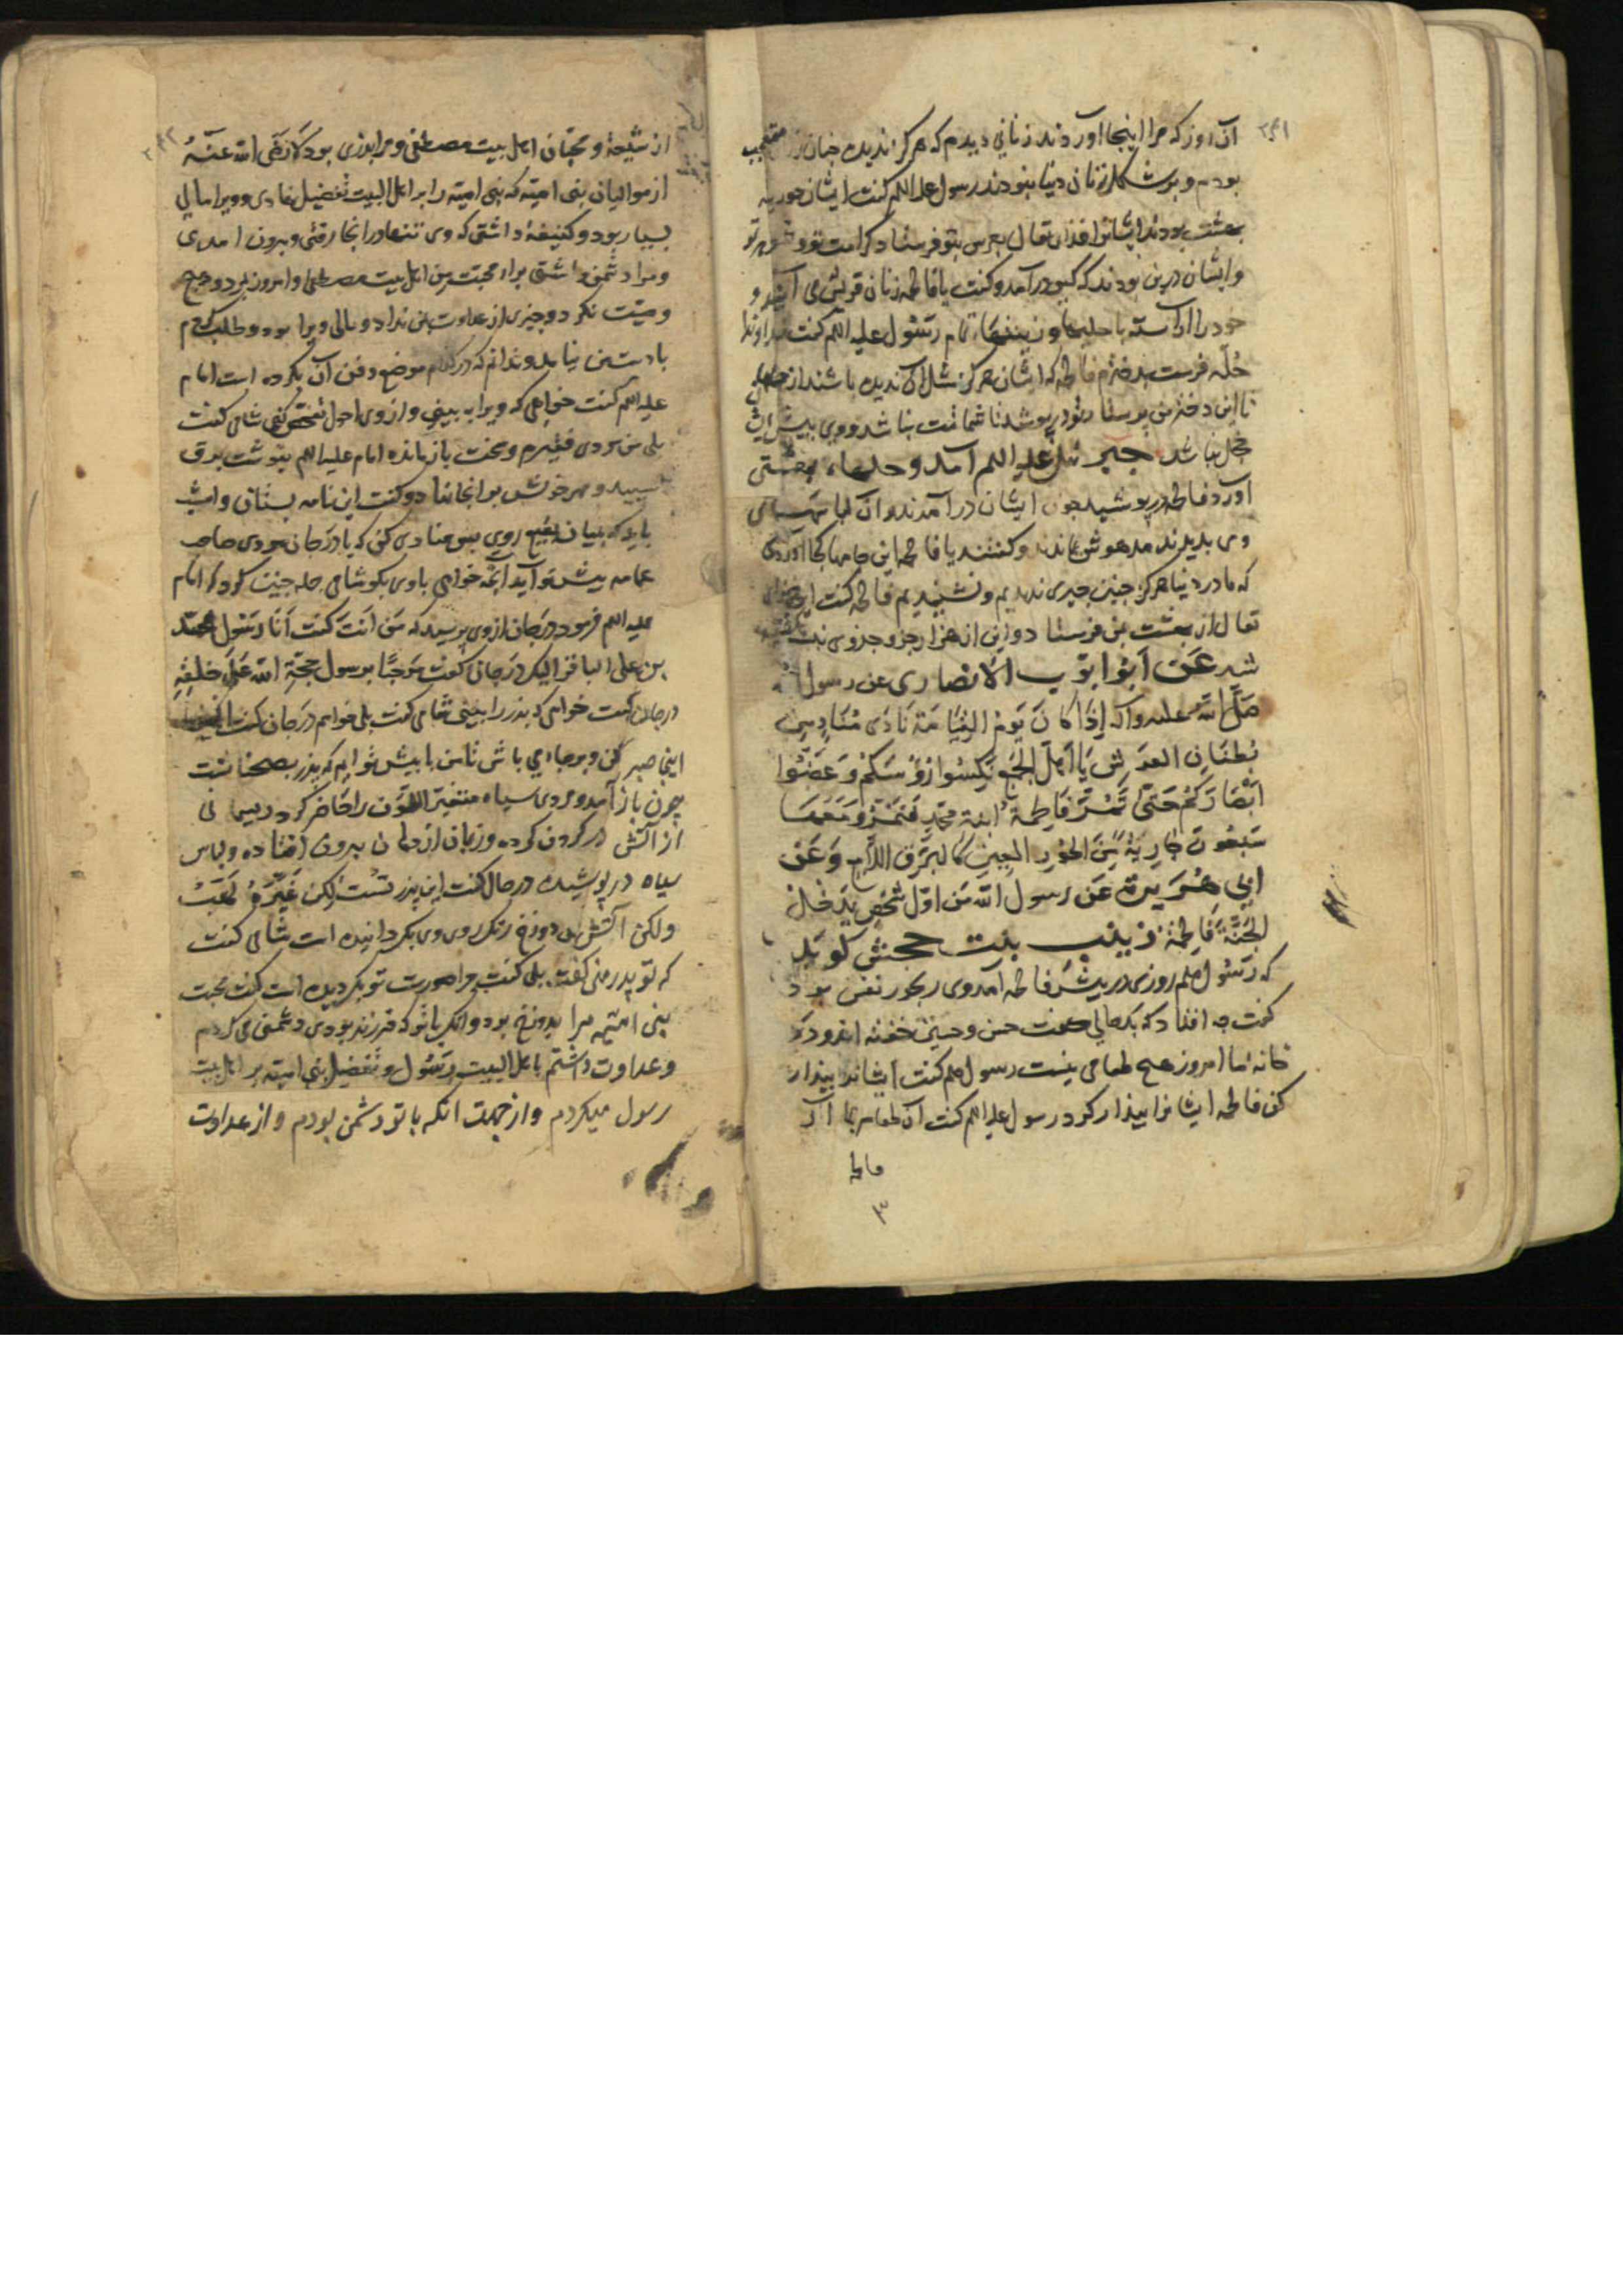 ۲۴۱
آن روز که مرا اینجا آوردند زنانی دیدم که هرگز ندیده چنان زنان متعجب
بودم و بر شکل زنان دنیا نبودند رسول علیه السلم گفت ایشان حوریه
بهشت بودند ایشانرا خدای تعالی بعرس بتو فرستاد کرامت تو و شوهر تو
و ایشان درین بودند که کسی درآمد و گفت یا فاطمه زنان قریش می آیند و
خود را آراسته با حلیها و زینتها تمام رسول علیه السلم گفت خداوندا
حُلّه فرست بدخترم فاطمه که ایشان هرگز مثل آن ندیده باشند از
تا این دختر من در پوشد تا شماتت نباشد و وی پیش ایشان
خجل نباشد جبرئیل علیه السلم آمد و حلهاء بهشتی
آورد فاطمه در پوشید چون ایشان درآمدند و آن لباسهای
وی بدیدند مدهوش بماندند و گفتند یا فاطمه این جامها کجا آوردی
که ما در دنیا هرگز چنین چیزی ندیدیم و نشنیدیم فاطمه گفت این خدای
تعالی از بهشت بمن فرستاد و این از هزار جزو جزوی
شد عَن اَبوُ ایّوب الانصاری عن رسول الله
صَلَّ اللهُ علیه وآله اِذَا کانَ یَومُ القِیَامَة نَادَی مُنَادٍ مِن
بُطنَانِ العَرشِ یَا اَهلَ الجَمعِ نَکِّسُوا رُؤسَکُم وَ غَضُّوا
اَبصَارَکُم حَتّی تَمُرَّ فَاطِمَةُ ابنة مُحَمّدٍ فَتَمُرُّ وَ مَعَهَا
سَبعُونَ جَارِیَةً مِنَ الحُورِ العِینِ کَالبَرقِ اللّامِعِ وَعَن
ابی هُرَیرة عَن رسول الله مَن اوّل شَخصٍ یَدخُلُ
الجَنَّةَ فَاطِمَة زینب بنت جحش گوید
که رسُول صلعم روزی در پیش فاطمه آمد وی رنجور نفس بود
گفت چه افتاد که بدحالی گفت حسن و حسین خفته اند و در
خانه ما امروز هیچ طعامی نیست رسول صلعم گفت ایشانرا بیدار
کن فاطمه ایشانرا بیدار کرد رسول علیه السلم گفت آن طعام بما آر
فاطمه
۳
۲۴۲
از شیعهٔ و محبّان اهل بیت مصطفی و مرا پدری بود کَانَ رضی الله عَنهُ
از موالیان بنی امیّه که بنی امیّه را بر اهل البیت تفضیل نهادی و ویرا مالی
بسیار بود و کنیفهٔ داشتی که وی تنها در انجا رفتی و بیرون آمدی
و مرا دشمن داشتی براء محبّت من اهل بیت مصطفی و امروز بمرد و هیچ
وصیّت نکرد و چیزی از عداوت بمن نداد و مالی ویرا بود و طلب کردم
بادست من نیامد و ندانم که در کدام موضع دفن آن بکرده است امام
علیه السلم گفت خواهی که ویرا ببینی و از وی احوال تفحّص کنی شامی گفت
بلی من مردی فقیرم و سخت بازمانده امام علیه السلم بنوشت برق
سپید و مهر خویش بر انجا نهاد و گفت این نامه بستان و امشب
باید که بمیان بقیع روی پس منادی کنی که یا درجان مردی صاحب
عمامه پیش تو آید آنچه خواهی باوی بگو شامی جمله چنین کرد که امام
علیه السلم فرمود درجان از وی پرسید که مَن اَنتَ گفت اَنَا رَسُول محمّد
بن علی الباقر الیک درَجان گفت مَرحَبًا برسول حجّة الله عَلی خَلقِهِ
درجان گفت خواهی که پدر را ببینی شامی گفت بلی خواهم درجان گفت
اینجا صبر کن و بر جای باش تا من با پیش تو آیم که پدر بضجنانست
چون باز آمد مردی سیاه متغیّر اللون را حاضر کرد و ریسمانی
از آتش در گردن کرده و زبان از دهان بیرون افتاده و لباس
سیاه در پوشیده درجان گفت این پدر تست لکن غَیَّرَهُ لَهَبُ
ولکن آتش دوزخ رنگ روی وی بگردانیده است شامی گفت
که تو پدر منی گفت بلی گفت چرا صورت تو بگردیده است گفت محبت
بنی امیّه مرا بدوزخ برد و انک با تو که فرزند بودی دشمنی می کردم
و عداوت داشتم با اهل البیت رَسُول و تفضیل بنی امیّه بر اهل بیت
رسول میکردم و از جهت انکه با تو دشمن بودم و از عداوت